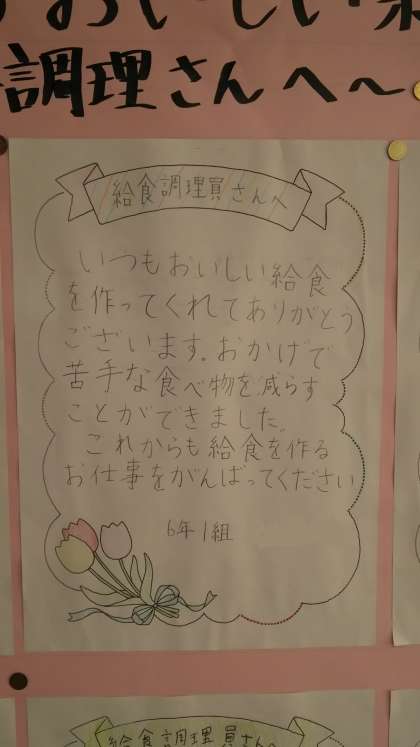 おいしい
調理さんへ〜
給食調理員さんへ
いつもおいしい給食
を作ってくれてありがとう
ございます。おかげで
苦手な食べ物を減らす
ことができました。
これからも給食を作る
お仕事をがんばってください
6年1組
給食調理員さんへ